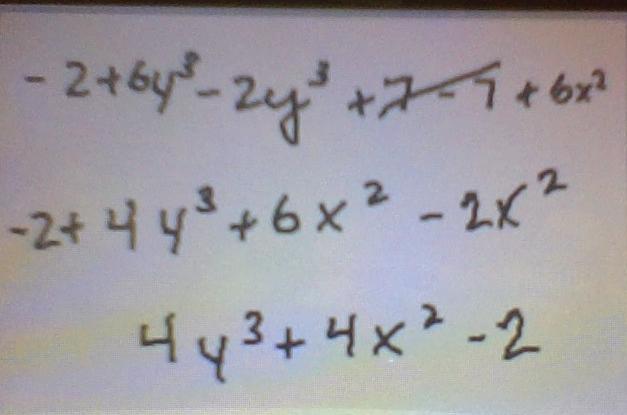 -2+6y³-2y³+7-7+6x²
-2+4y³+6x²-2x²
4y³+4x²-2